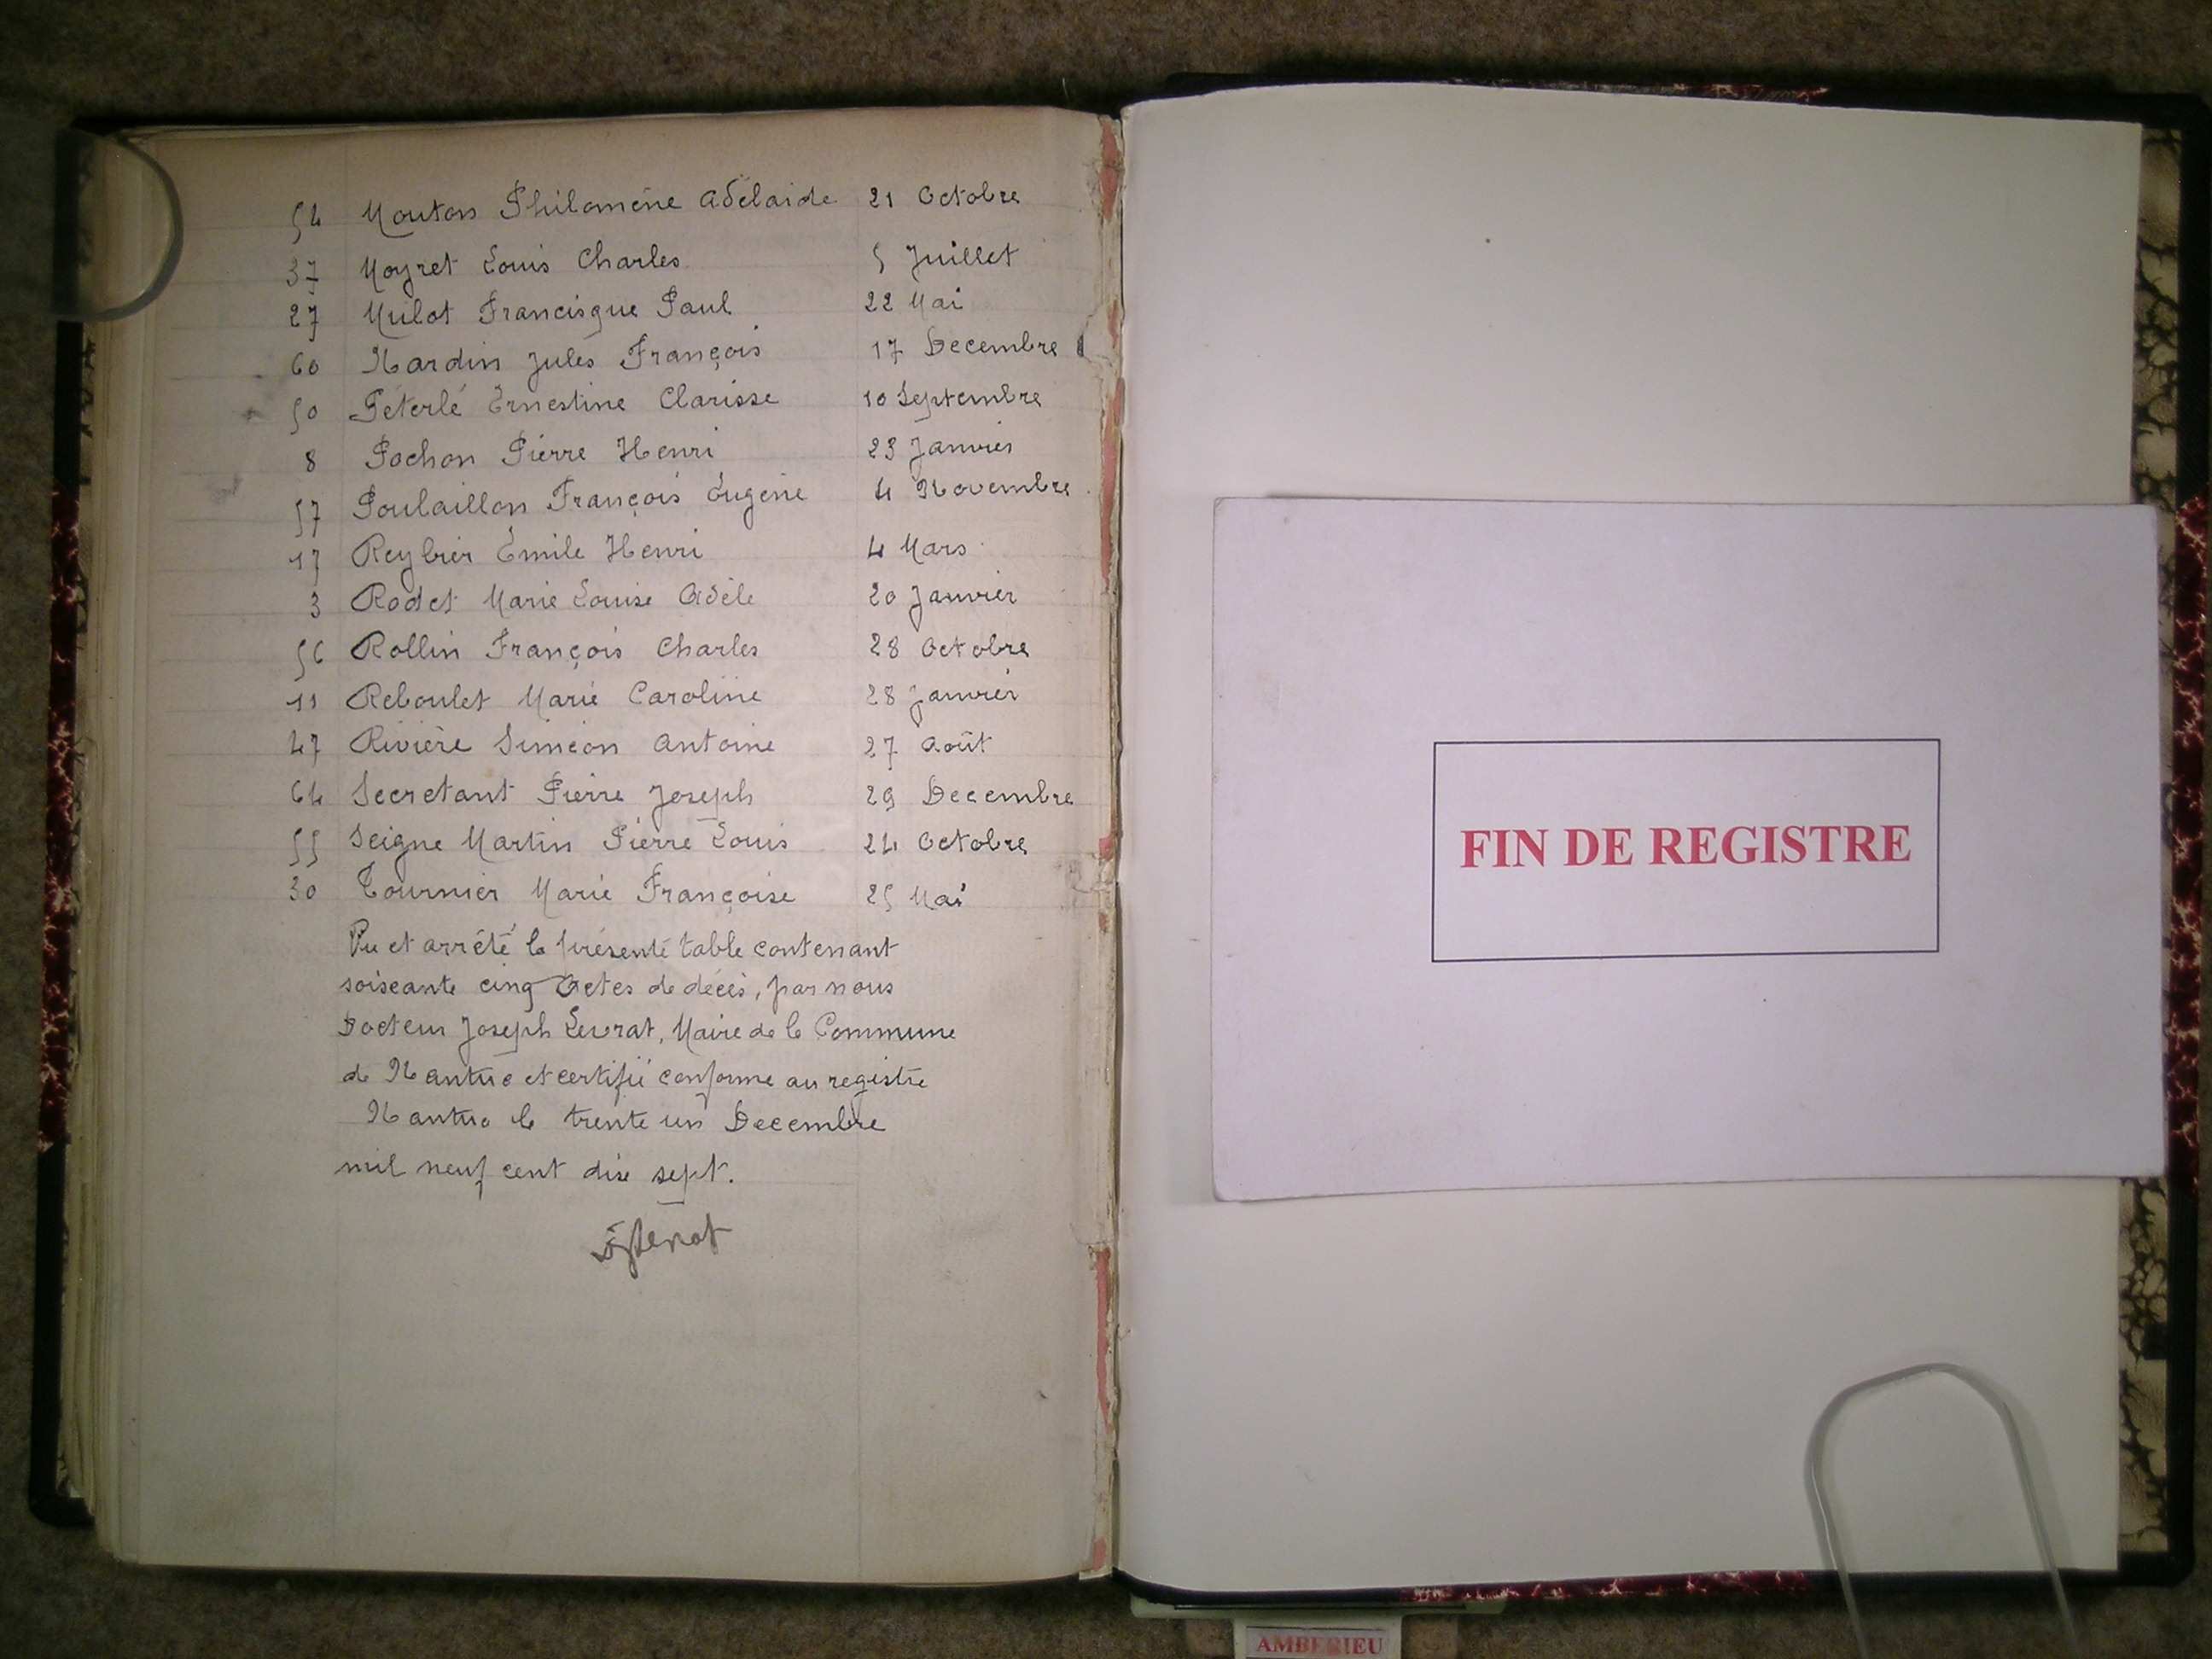 54 Mouton Philomène Adélaide 21 Octobre
37 Moyret Louis Charles 5 Juillet
27 Mulot Francisque Paul 22 Mai
60 Nardin Jules François 17 Decembre
50 Péterlé Ernestine Clarisse 10 Septembre
8 Pochon Pierre Henri 23 Janvier
57 Poulaillon François Eugène 4 Novembre
17 Reybier Émile Henri 4 Mars
3 Rodet Marie Louise Adèle 20 Janvier
56 Rollin François Charles 28 Octobre
11 Reboulet Marie Caroline 28 Janvier
47 Rivière Siméon Antoine 27 Août
64 Secretant Pierre Joseph 29 Decembre
55 Seigne Martin Pierre Louis 24 Octobre
30 Tournier Marie Françoise 25 Mai
Vu et arrêté la présente table contenant
soixante cinq Actes de décès, par nous
Docteur Joseph Levrat, Maire de la Commune
de Nantua et certifié conforme au registre
Nantua le trente un Decembre
mil neuf cent dix sept.
FIN DE REGISTRE
AMBERIEU